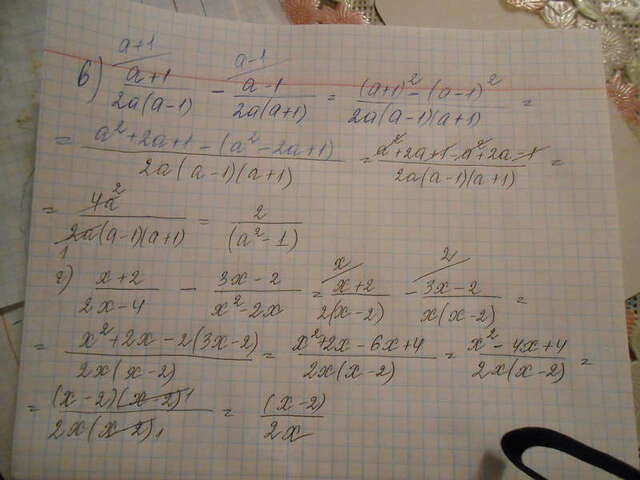 в) a+1/2a(a-1) (a+1 - a-1/2a(a+1) (a-1 = (a+1)² - (a-1)²/2a(a-1)(a+1) =
= a²+2a+1-(a²-2a+1)/2a(a-1)(a+1) = a²+2a+1-a²+2a-1/2a(a-1)(a+1) =
= 4a 2/2a(a-1)(a+1) 1 = 2/(a²-1)
г) x+2/2x-4 - 3x-2/x²-2x = x+2/2(x-2) (x - 3x-2/x(x-2) (2 =
= x²+2x-2(3x-2)/2x(x-2) = x²+2x-6x+4/2x(x-2) = x²-4x+4/2x(x-2) =
= (x-2)(x-2) 1/2x(x-2) 1 = (x-2)/2x